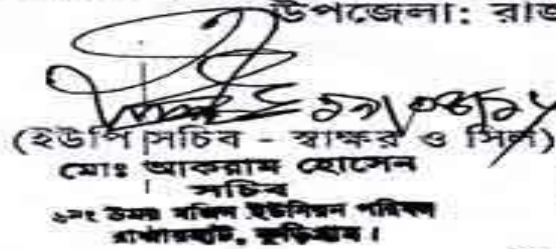 উপজেলা: রাজ
(ইউপি সচিব - স্বাক্ষর ও সিল)
মোঃ আকরাম হোসেন
সচিব
ইউনিয়ন পরিষদ
রাজারহাট, কুড়িগ্রাম।